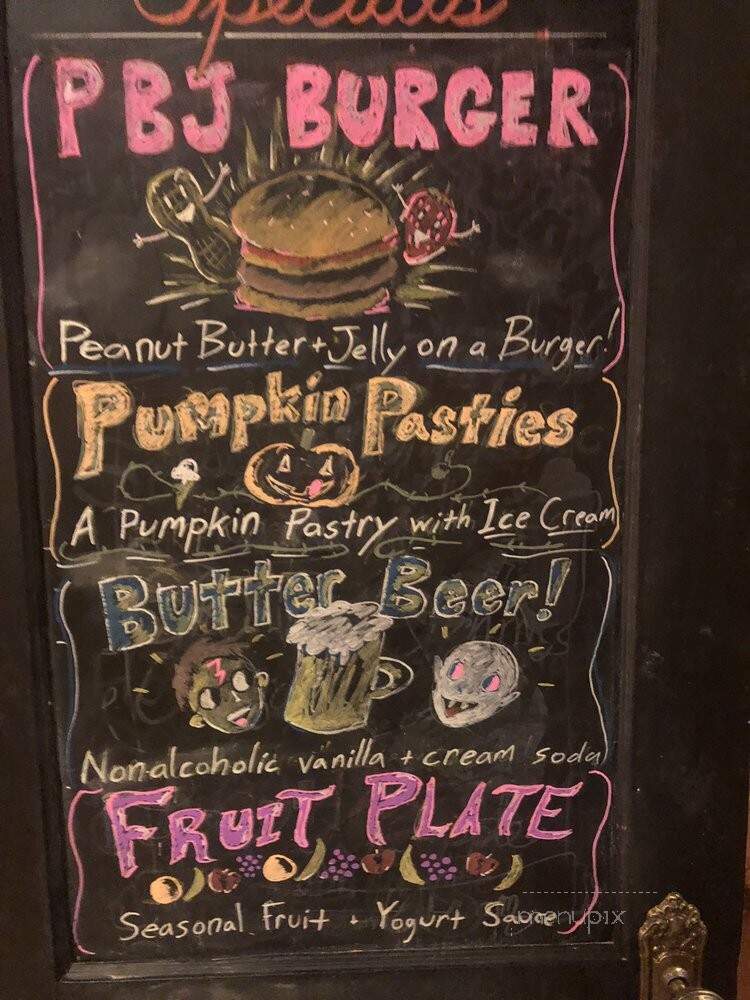 Specials
PBJ BURGER
Peanut Butter + Jelly on a Burger!
Pumpkin Pasties
A Pumpkin Pastry with Ice Cream
Butter Beer!
Nonalcoholic vanilla + cream soda
FRUIT PLATE
Seasonal Fruit + Yogurt Sauce
menupix